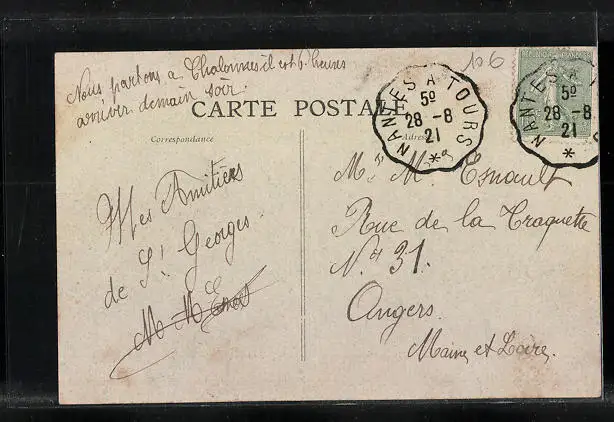 Nous partons a Chalonnes il est 6 heures
arriver demain soir
CARTE POSTALE
Correspondance
Adresse
Mes Amitiés
de St Georges
M M
106
NANTES A TOURS
5º
28 -8
21
*
NANTES A
5º
28 -8
21
*
Mr M. Esnault
Rue de la Traquette
No 31.
Angers.
Maine et Loire.